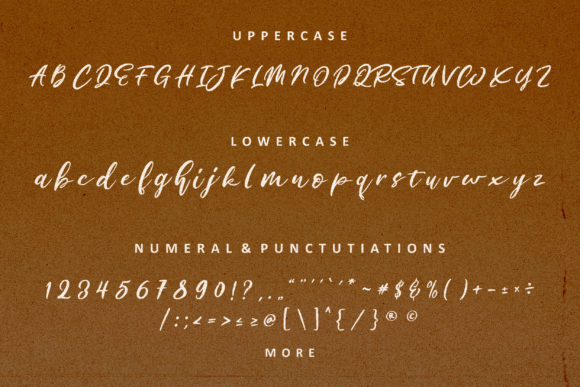 UPPERCASE
ABCDEFGHIJKLMNOPQRSTUVWXYZ
LOWERCASE
abcdefghijklmnopqrstuvwxyz
NUMERAL & PUNCTUTIATIONS
1234567890!?,.„“”‘’`'*~#$&%()+-±×÷
/:;<=>≤≥@[\]^{/}®©
MORE